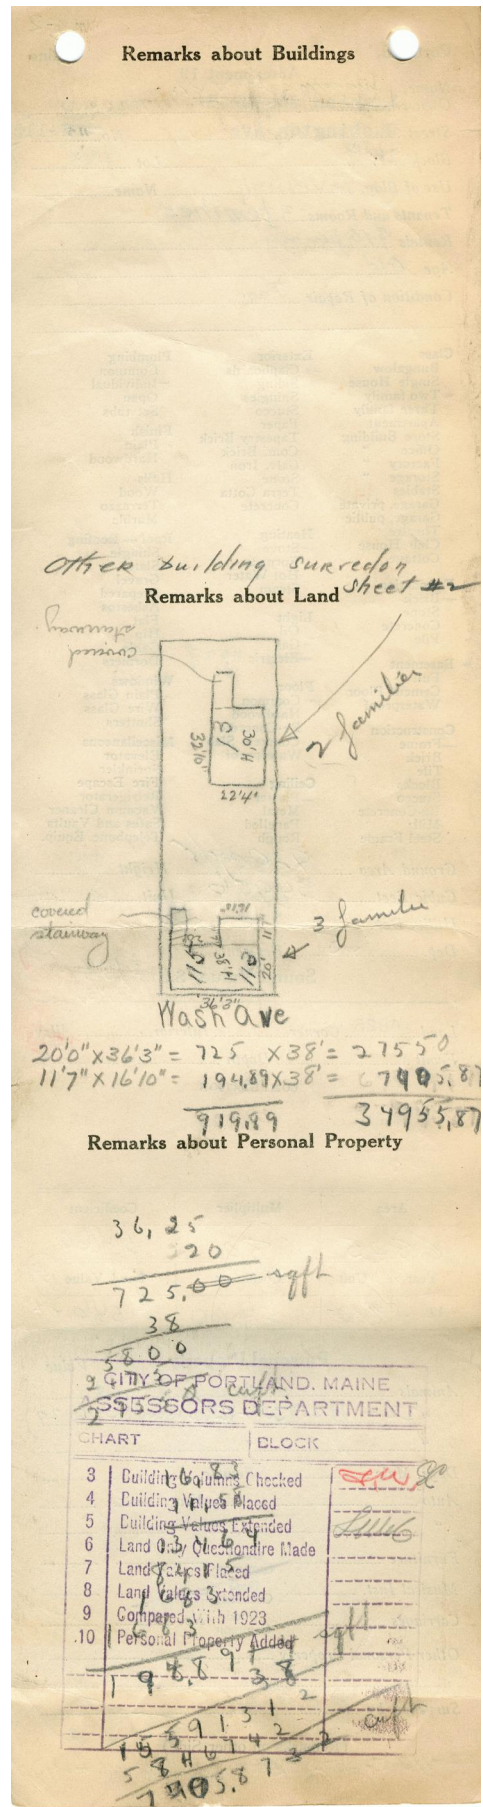 Remarks about Buildings
Other building surredon
sheet #2
Remarks about Land
covered
stairway
2 families
32'10"
30'H
22'4"
3 familie
covered
stairway
16'10"
11'
20'
38'H
36'3"
Wash Ave
20'0" x 36'3" = 725 x 38' = 27550
11'7" x 16'10" = 194,89 x 38' = 7405,87
919,89 34955,87
Remarks about Personal Property
36,25
20
725,00 sqft
38
5800
2175
27550 cuft
CITY OF PORTLAND, MAINE
ASSESSORS DEPARTMENT
CHART BLOCK
3 Building Columns Checked
4 Building Values Placed
5 Building Values Extended
6 Land Only Questionaire Made
7 Land Values Placed
8 Land Values Extended
9 Compared With 1923
10 Personal Property Added
16,83
11,58
13464
8415
1683
1683
sqft
38
1559131 2
584674 2
7405.87 cuft